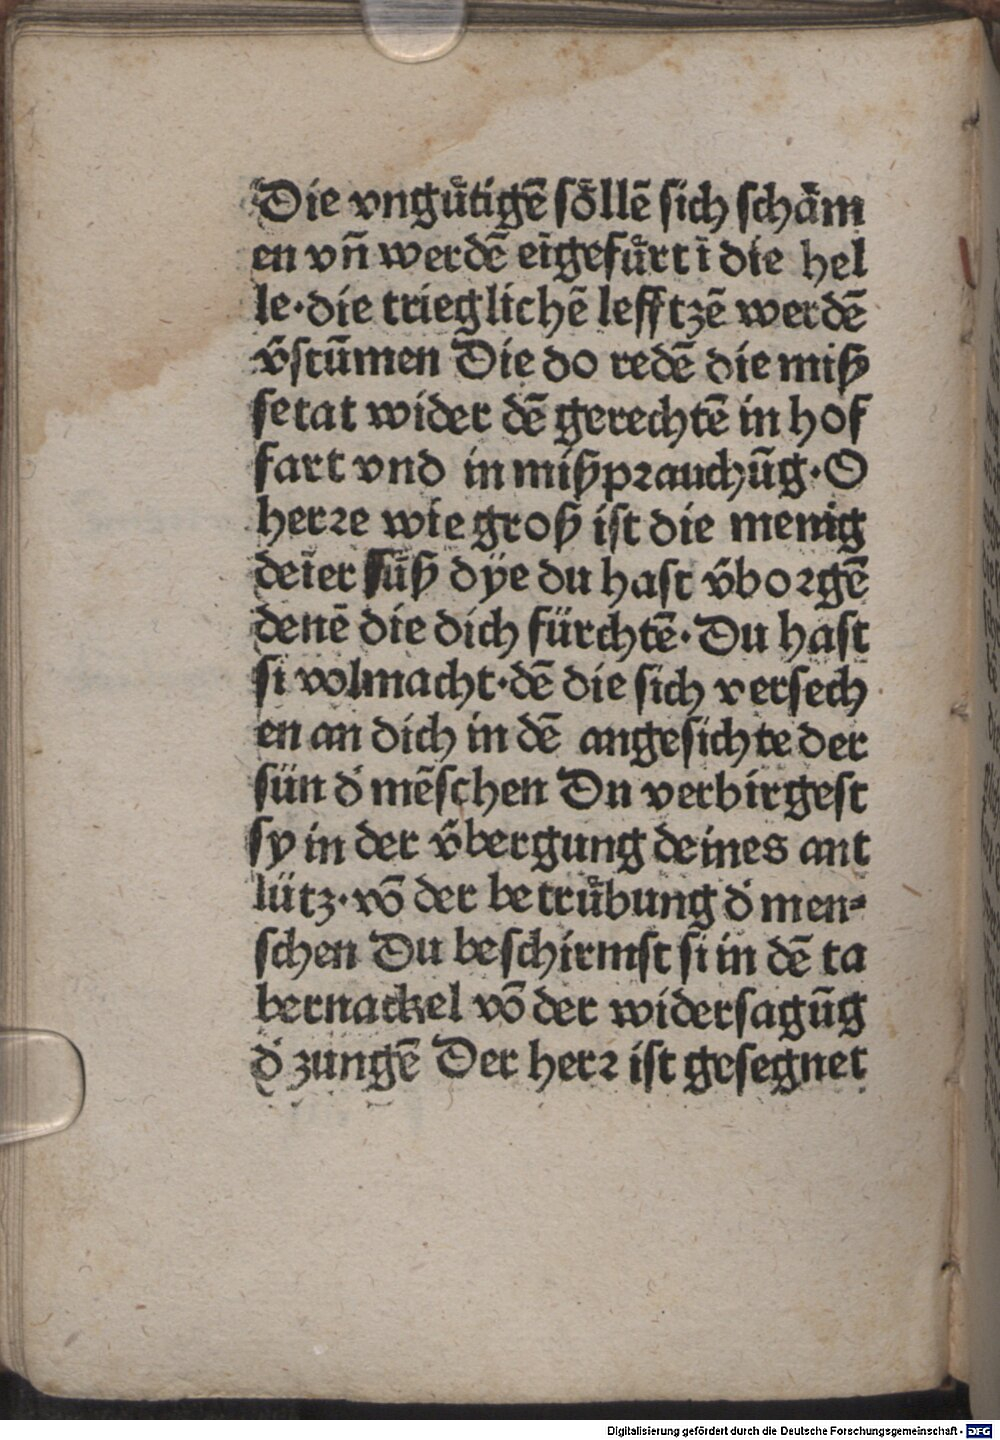 Die vnguͤtigē soͤllē sich schaͤm
en vñ werdē eīgefuͤrt ī die hel
le·die trieglichē lefftzē werdē
v̄stūmen Die do redē die miß
setat wider dē gerechtē in hof
fart vnd in mißprauchūg·O
herre wie groß ist die menig
deīer süß dÿe du hast v̄borgē
denē die dich fürchtē·Du hast
si volmacht·dē die sich versech
en an dich in dē angesichte der
sün d' mēschen Dn verbirgest
sy in der v̄bergung deines ant
lütz·vō der betruͤbung d' men⸗
schen Du beschirmst si in dē ta
bernackel vō der widersagūg
d' zungē Der herr ist gesegnet
Digitalisierung gefördert durch die Deutsche Forschungsgemeinschaft - DFG